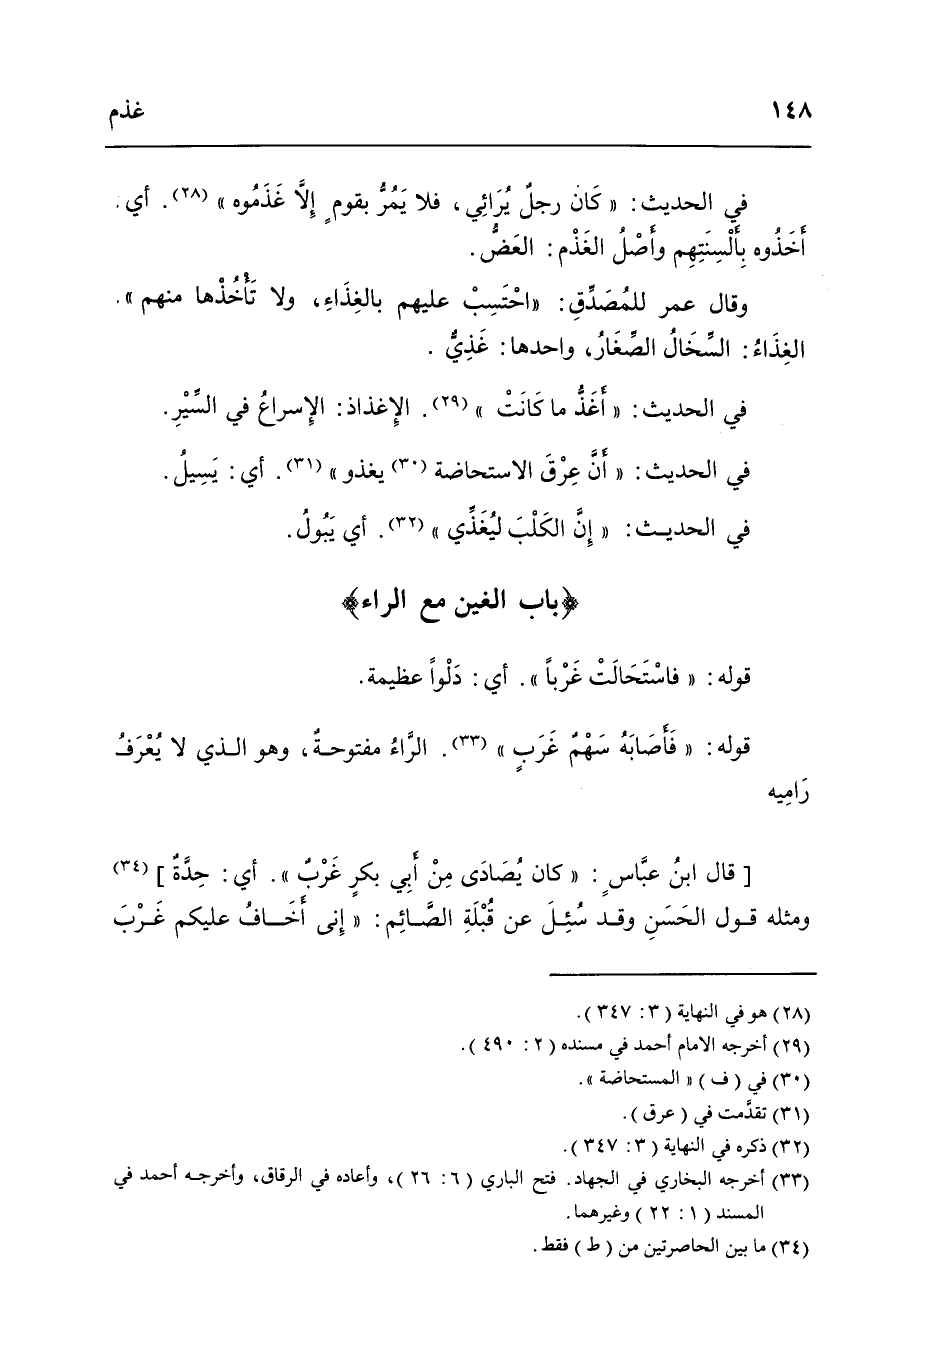 ١٤٨ غذم
في الحديث: « كَانَ رجلٌ يُرَائِي، فلا يَمُرُّ بقومٍ إِلَّا غَذَمُوه » (٢٨). أي.
أَخَذُوه بِأَلْسِنَتِهِم وأَصْلُ الغَذْمِ: العَضُّ.
وقال عمر للمُصَدِّقِ: «احْتَسِبْ عليهم بالغِذَاءِ، ولا تَأْخُذْها منهم».
الغِذَاءُ: السِّخَالُ الصِّغَارُ، واحدها: غَذِيٌّ .
في الحديث: « أَغَذُّ ما كَانَتْ » (٢٩). الإِغذاذ: الإِسراعُ في السِّيْرِ.
في الحديث: « أَنَّ عِرْقَ الاستحاضة (٣٠) يغذو» (٣١). أي: يَسِيلُ.
في الحديث: « إِنَّ الكَلْبَ ليُغَذِّي » (٣٢). أي يَبُولُ.
﴿باب الغين مع الراء﴾
قوله: « فاسْتَحَالَتْ غَرْباً ». أي: دَلْواً عظيمة.
قوله: « فَأَصَابَهُ سَهْمُ غَرَبٍ » (٣٣). الرَّاءُ مفتوحةٌ، وهو الذي لا يُعْرَفُ
رَامِيه
[ قال ابنُ عبَّاسٍ: « كان يُصَادَى مِنْ أَبي بكرٍ غَرْبٌ ». أي: حِدَّةٌ ] (٣٤)
ومثله قول الحَسَنِ وقد سُئِلَ عن قُبْلَةِ الصَّائِم: « إِنى أَخَافُ عليكم غَرْبَ
(٢٨) هو في النهاية ( ٣: ٣٤٧ ).
(٢٩) أخرجه الامام أحمد في مسنده ( ٢: ٤٩٠ ).
(٣٠) في ( ف ) « المستحاضة ».
(٣١) تقدَّمت في ( عرق ).
(٣٢) ذكره في النهاية ( ٣: ٣٤٧ ).
(٣٣) أخرجه البخاري في الجهاد. فتح الباري ( ٦: ٢٦ )، وأعاده في الرقاق، وأخرجه أحمد في
المسند ( ١: ٢٢ ) وغيرهما.
(٣٤) ما بين الحاصرتين من ( ط ) فقط.